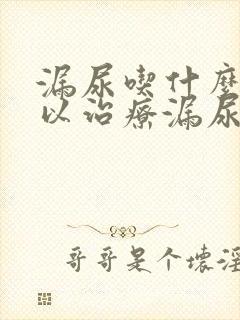 漏尿喫什麼
以治療漏尿
哥哥是个壞淫